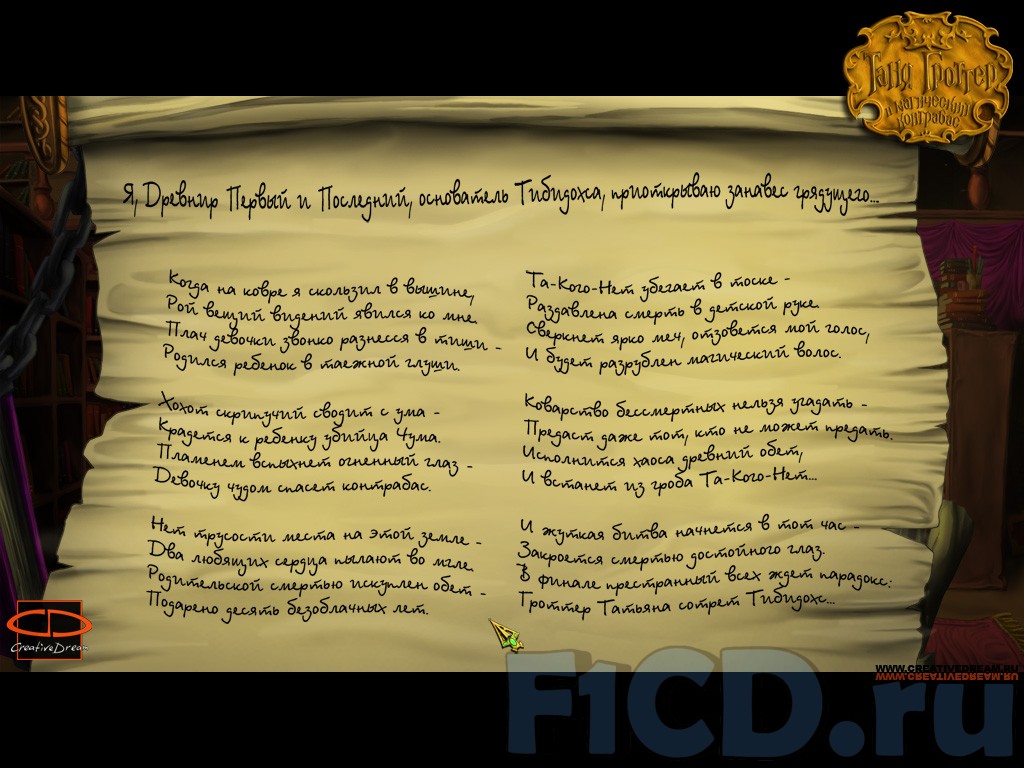 Таня Гроттер
и магический
контрабас
Я, Древнир Первый и Последний, основатель Тибидохса, приоткрываю занавес грядущего...
Когда на ковре я скользил в вышине,
Рой вещий видений явился ко мне.
Плач девочки звонко разнесся в тиши -
Родился ребенок в таежной глуши.
Хохот скрипучий сводит с ума -
Крадется к ребенку убийца Чума.
Пламенем вспыхнет огненный глаз -
Девочку чудом спасет контрабас.
Нет трусости места на этой земле -
Два любящих сердца пылают во мгле.
Родительской смертью искуплен обет -
Подарено десять безоблачных лет.
Та-Кого-Нет убегает в тоске -
Раздавлена смерть в детской руке.
Сверкнет ярко меч, отзовется мой голос,
И будет разрублен магический волос.
Коварство бессмертных нельзя угадать -
Предаст даже тот, кто не может предать.
Исполнится хаоса древний обет,
И встанет из гроба Та-Кого-Нет...
И жуткая битва начнется в тот час -
Закроется смертью достойного глаз.
В финале престранный всех ждет парадокс:
Гроттер Татьяна сотрет Тибидохс...
CreativeDream
WWW.CREATIVEDREAM.RU
F1CD.ru